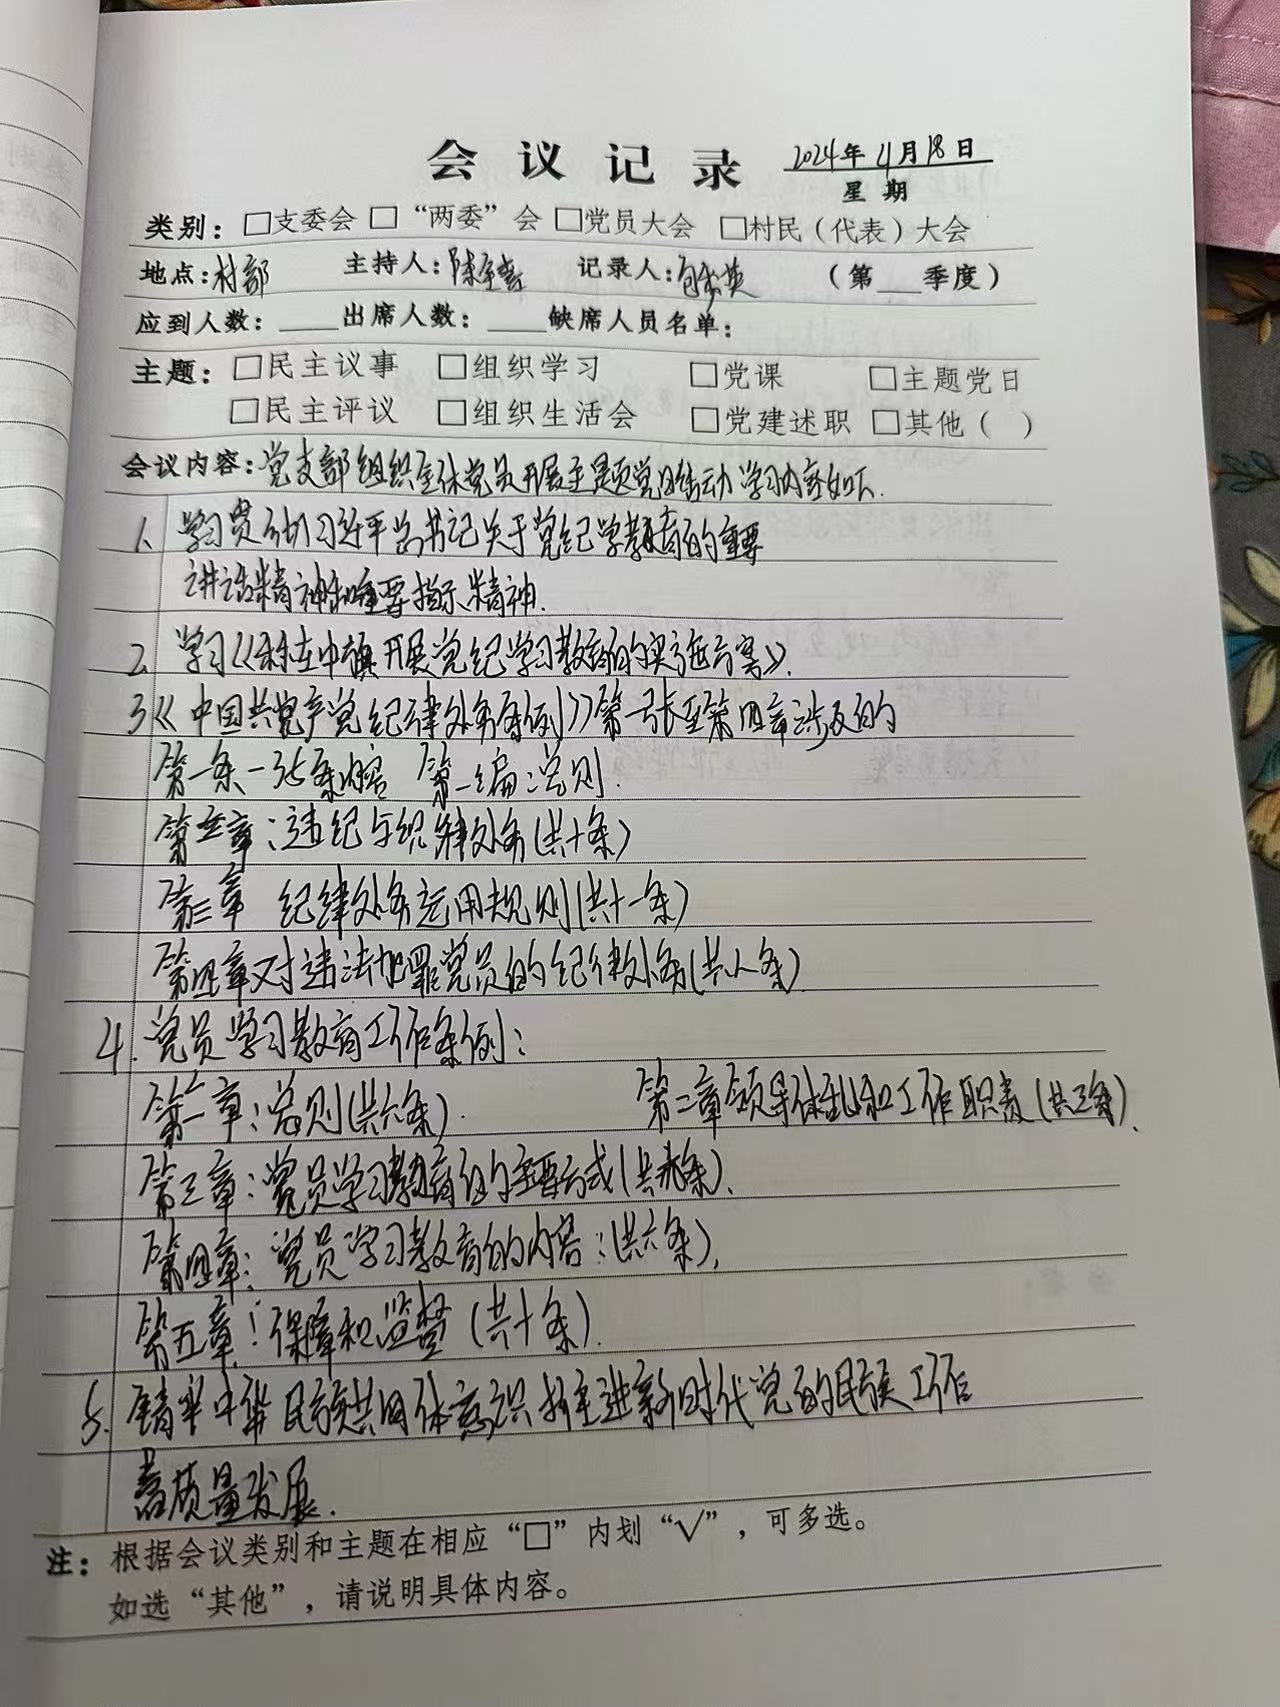 会议记录 2024年4月18日
星期
类别：□支委会 □“两委”会 □党员大会 □村民（代表）大会
地点：村部 主持人：陈 记录人：包 （第___季度）
应到人数：____出席人数：____缺席人员名单：
主题：□民主议事 □组织学习 □党课 □主题党日
□民主评议 □组织生活会 □党建述职 □其他（ ）
会议内容：党支部组织全体党员开展主题党日活动 学习内容如下.
1、学习贯彻习近平总书记关于党纪学教育的重要
讲话精神和重要指示精神.
2、学习《科左中旗开展党纪学习教育的实施方案》.
3《中国共党产党纪律处分条例》第一张至第四章涉及的
第一条一35条内容 第一编：总则.
第二章：违纪与纪律处分(共十条)
第三章 纪律处分运用规则(共十一条)
第四章对违法犯罪党员的纪律处分(共八条)
4.党员学习教育工作条例：
第一章：总则(共六条). 第二章领导体制和工作职责(共三条).
第三章：党员学习教育的主要方式(共九条).
第四章：党员学习教育的内容：(共六条).
第五章：保障和监督(共十条).
5.铸牢中华民族共同体意识 推进新时代党的民族工作
高质量发展.
注：根据会议类别和主题在相应“□”内划“√”，可多选。
如选“其他”，请说明具体内容。